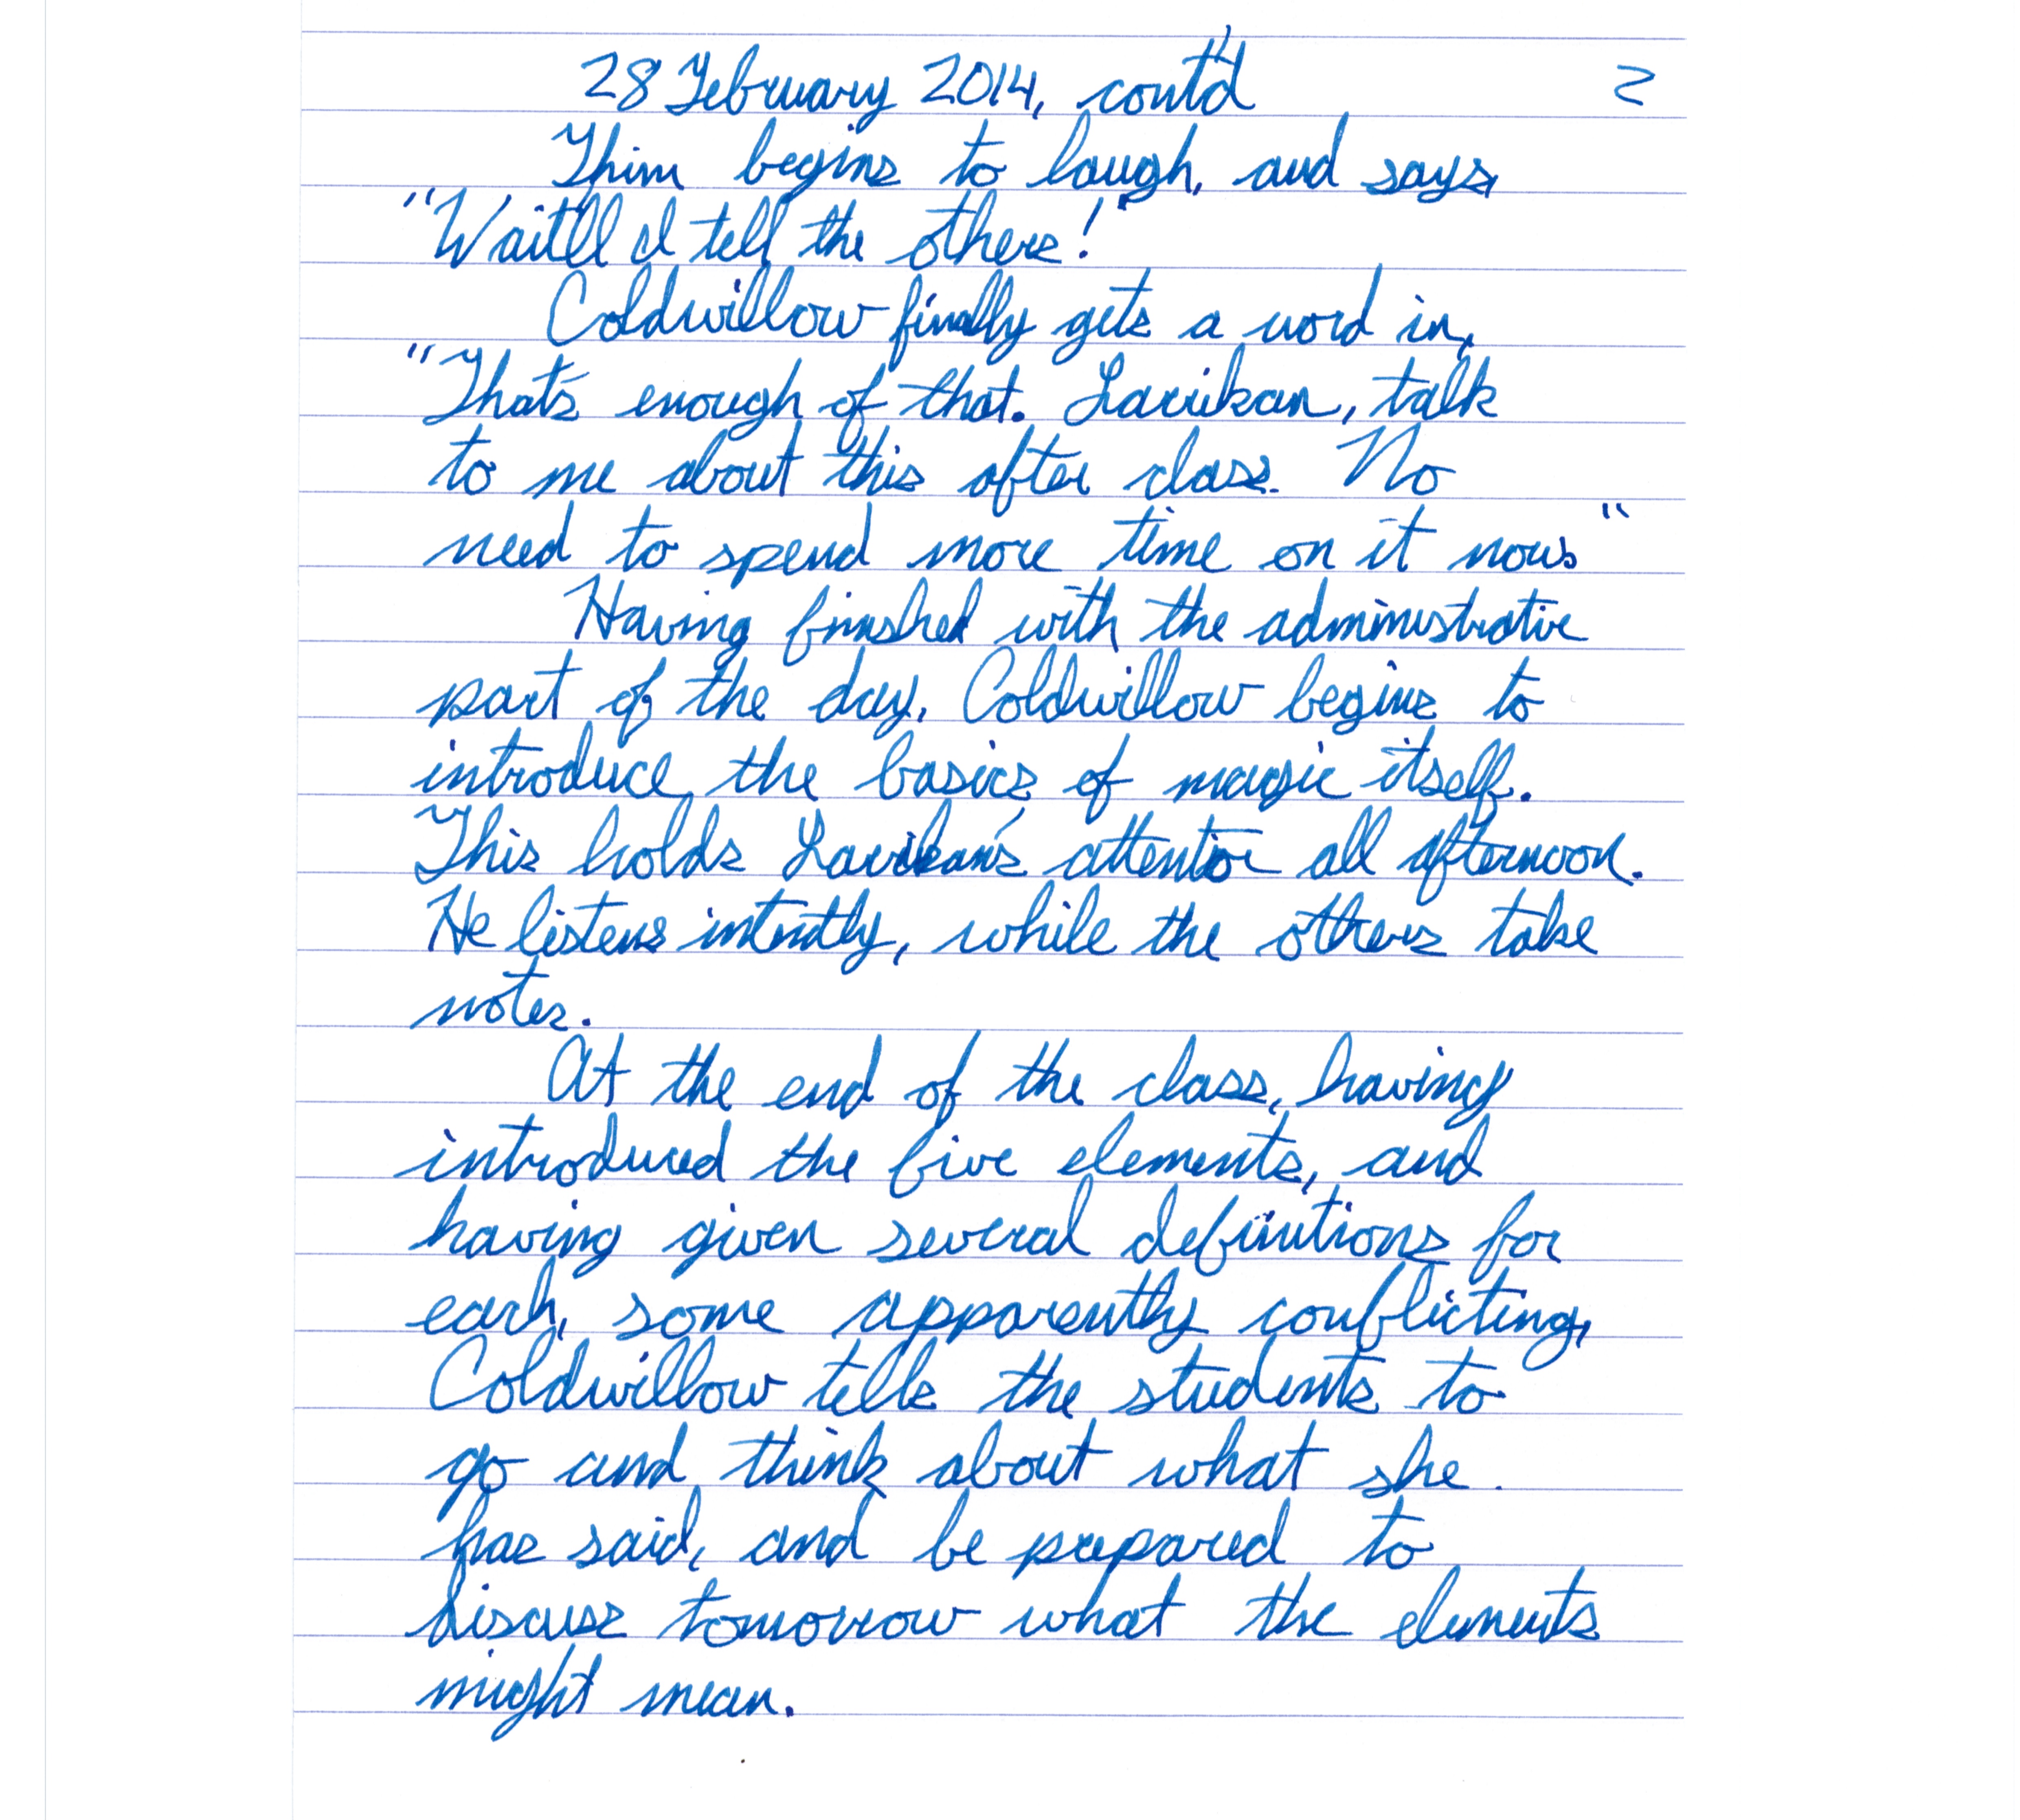 28 February 2014, cont'd 2
Thim begins to laugh, and says,
"Wait'll I tell the others!"
Coldwillow finally gets a word in,
"That's enough of that. Larrikan, talk
to me about this after class. No
need to spend more time on it now."
Having finished with the administrative
part of the day, Coldwillow begins to
introduce the basics of magic itself.
This holds Larrikan's attention all afternoon.
He listens intently, while the others take
notes.
At the end of the class, having
introduced the five elements, and
having given several definitions for
each, some apparently conflicting,
Coldwillow tells the students to
go and think about what she
has said, and be prepared to
discuss tomorrow what the elements
might mean.